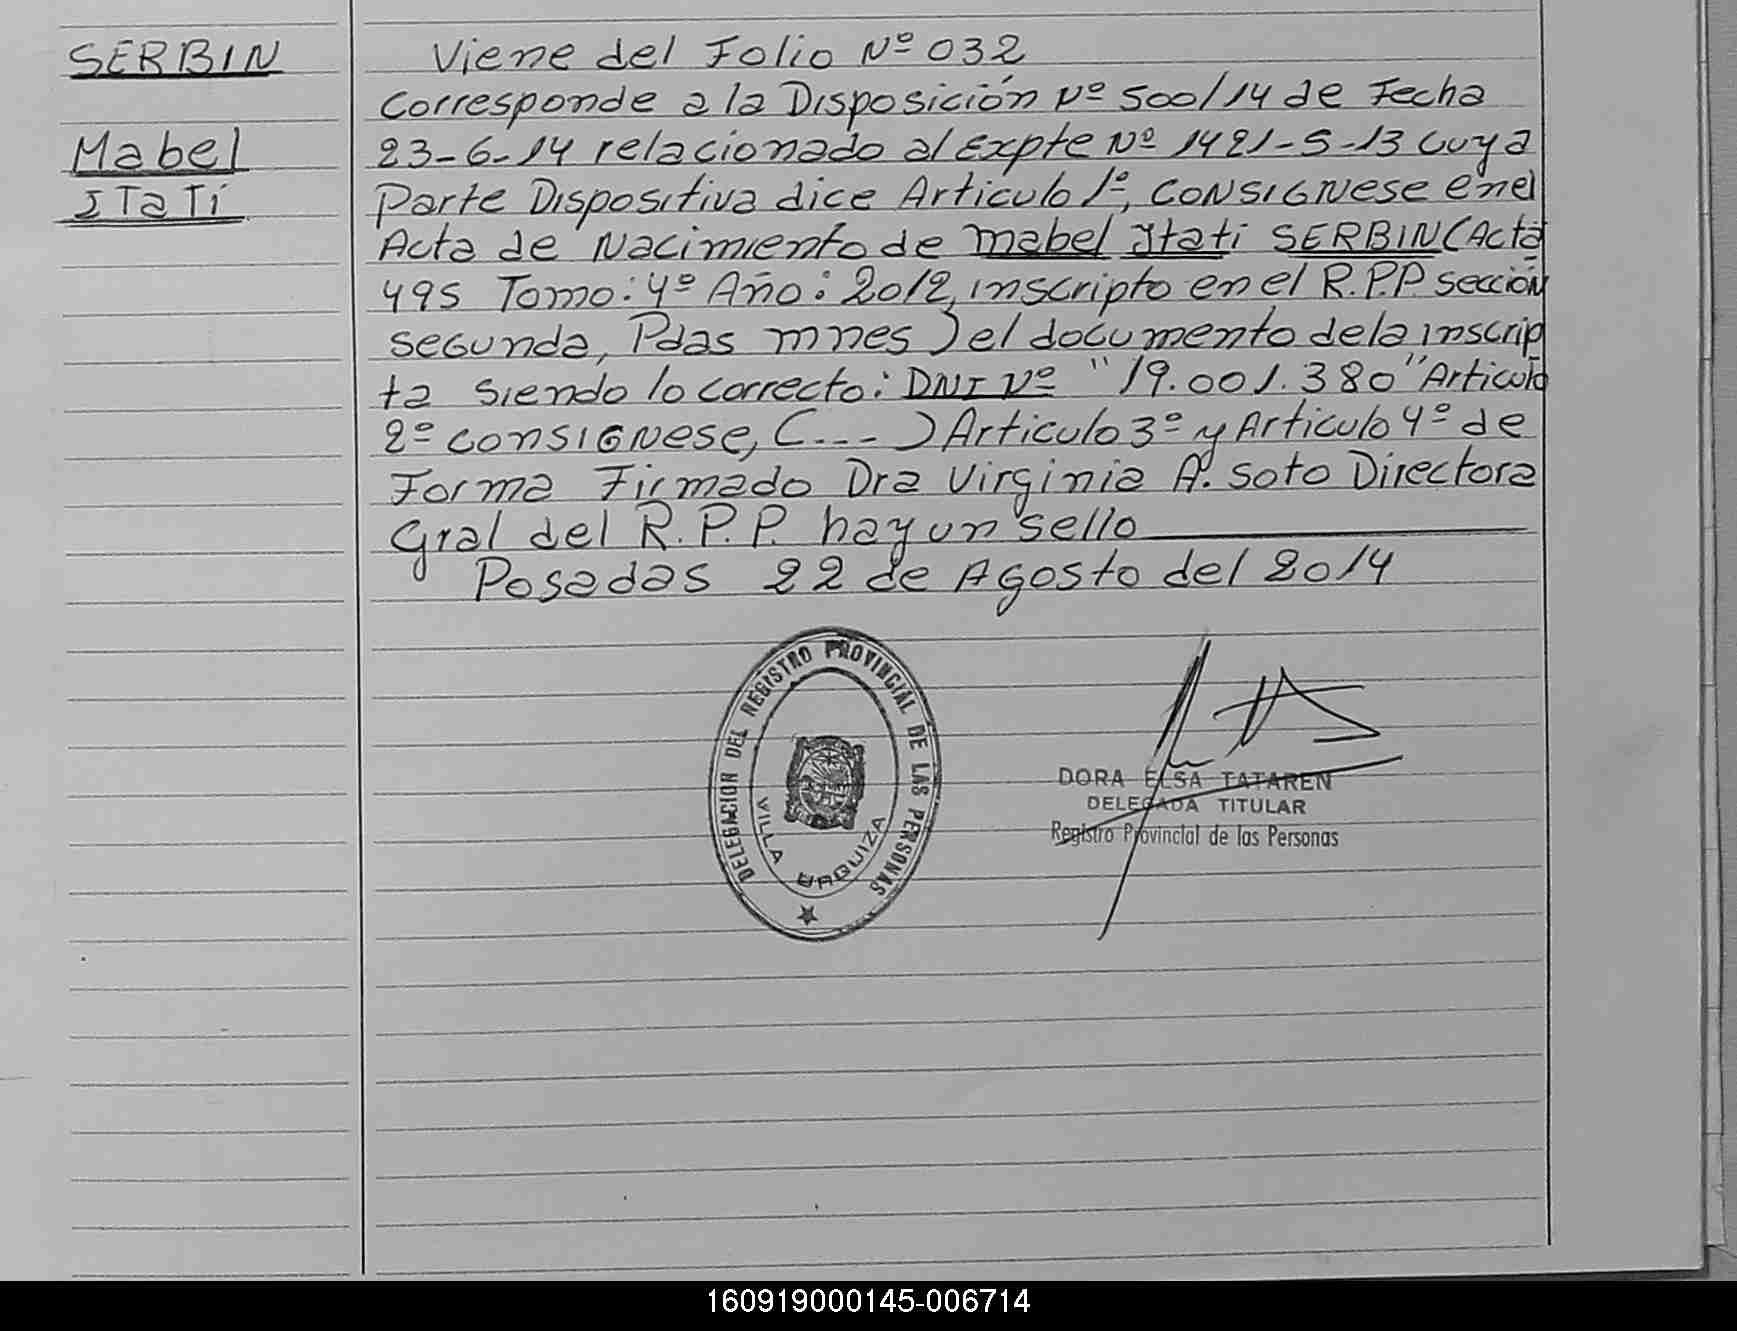 SERBIN
Mabel
ITaTí
Viene del Folio Nº 032
Corresponde a la Disposición Nº 500/14 de Fecha
23-6-14 relacionado al Expte Nº 1421-S-13 cuya
Parte Dispositiva dice Articulo 1º, CONSIGNESE en el
Acta de Nacimiento de Mabel Itati SERBIN (Acta
495 Tomo: 4º Año: 2012, inscripto en el R.P.P. sección
segunda, Pdas mnes) el documento de la inscrip
ta siendo lo correcto: DNI Nº "19.001.380" Articulo
2º CONSIGNESE, (...) Articulo 3º y Articulo 4º de
Forma Firmado Dra Virginia A. Soto Directora
Gral del R.P.P. hay un sello
Posadas 22 de Agosto del 2014
DELEGACION DEL REGISTRO PROVINCIAL DE LAS PERSONAS
VILLA URQUIZA
DORA ELSA TATAREN
DELEGADA TITULAR
Registro Provincial de las Personas
160919000145-006714